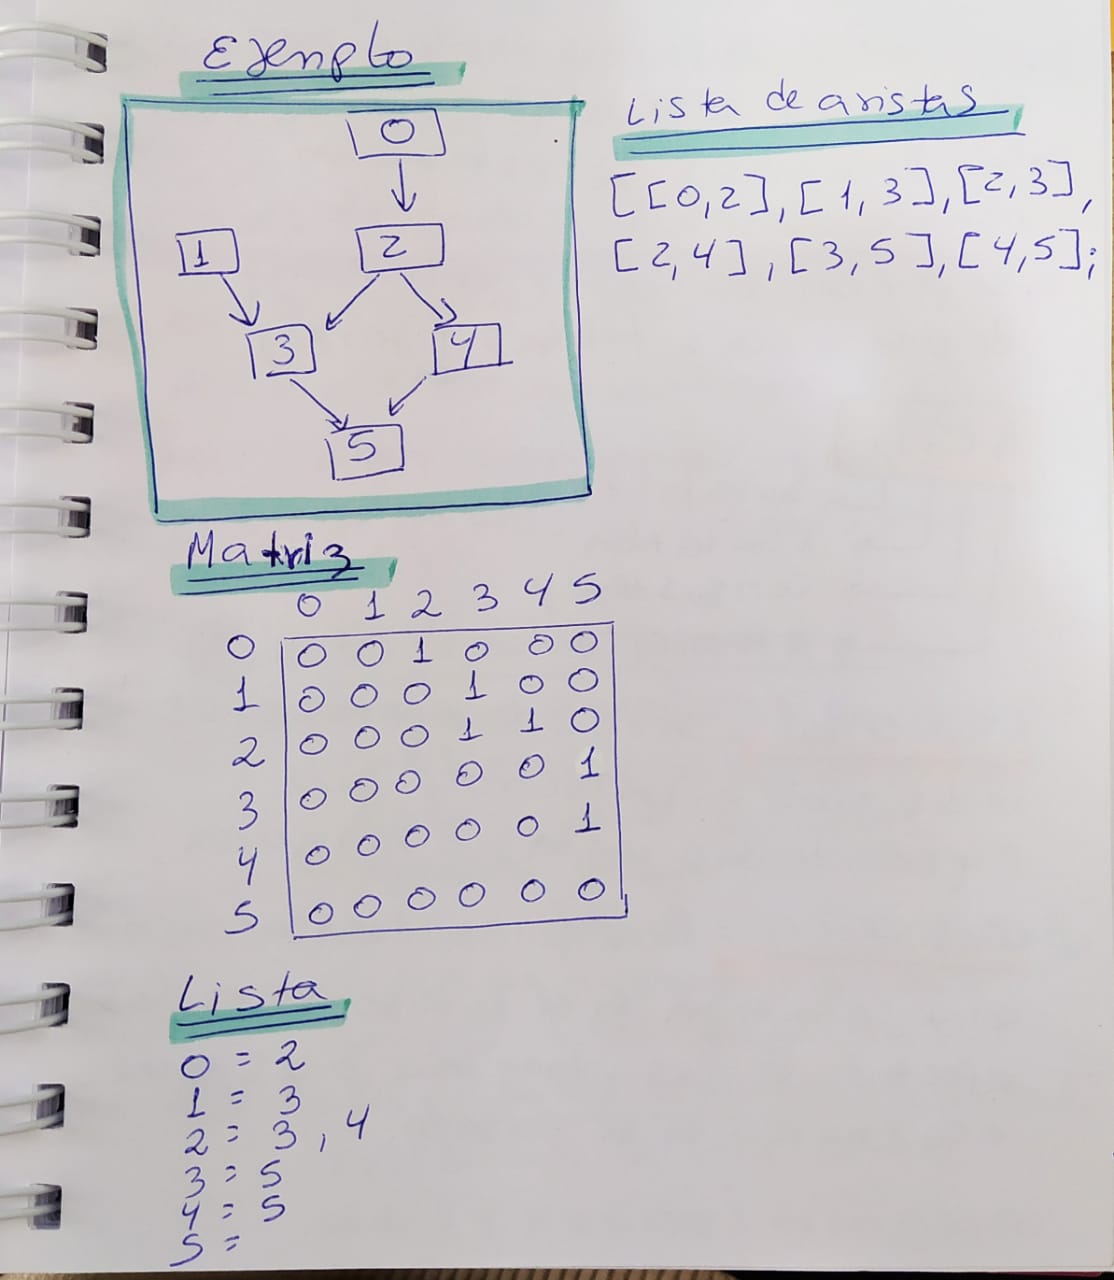 Ejemplo
0
1 2
3 4
5
Lista de aristas
[[0,2],[1,3],[2,3],
[2,4],[3,5],[4,5];
Matriz
0 1 2 3 4 5
0 0 0 1 0 0 0
1 0 0 0 1 0 0
2 0 0 0 1 1 0
3 0 0 0 0 0 1
4 0 0 0 0 0 1
5 0 0 0 0 0 0
Lista
0 = 2
1 = 3
2 = 3, 4
3 = 5
4 = 5
5 =